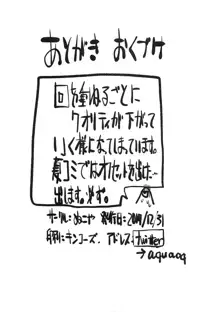 あとがき おくづけ
回を重ねるごとに
クオリティが下がって
いく様になってしまっています。
夏コミではオフセットを出せ…
出ます。必ず。
サークル:ぬこや 発行日=2009/12/31
印刷:キンコーズ. アドレス:twitter
→aquaoq